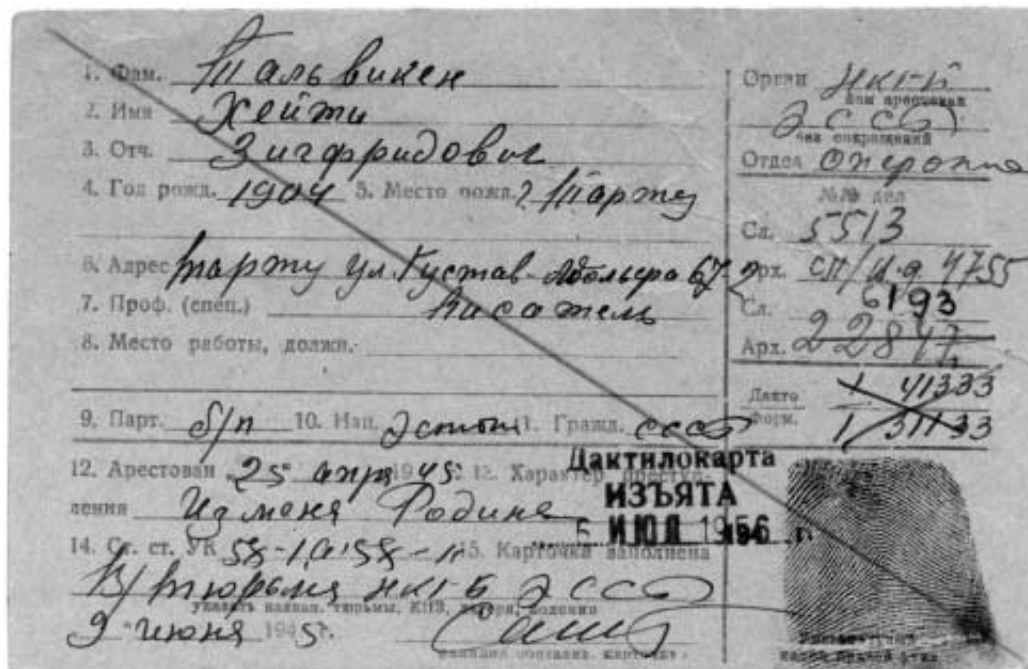 1. Фам. Тальвикен
2. Имя Хейти
3. Отч. Зигфридович
4. Год рожд. 1904 5. Место рожд. г. Тарту
6. Адрес Тарту ул. Густав-Адольфа 67-2
7. Проф. (спец.) Писатель
8. Место работы, должн.
9. Парт. б/п 10. Нац. эстон 11. Гражд. СССР
12. Арестован 25 апр 1945. 13. Характер преступ-
ления Измена Родине
14. Ст. ст. УК 58-1а; 58-11 15. Карточка заполнена
В/тюрьма НКГБ ЭССР
указать назван. тюрьмы, КПЗ, лагеря, колонии
9 " июня 1945г.
Орган НКГБ
кем арестован
ЭССР
без сокращений
Отдел Оперотд
№№ дел
Сл. 5513
Арх. сл/и.д. 4755
Сл. 6193
Арх. 22847
Дакто 1 41333
форм. 1/31133
Дактилокарта
ИЗЪЯТА
5 ИЮЛ 1956 г.